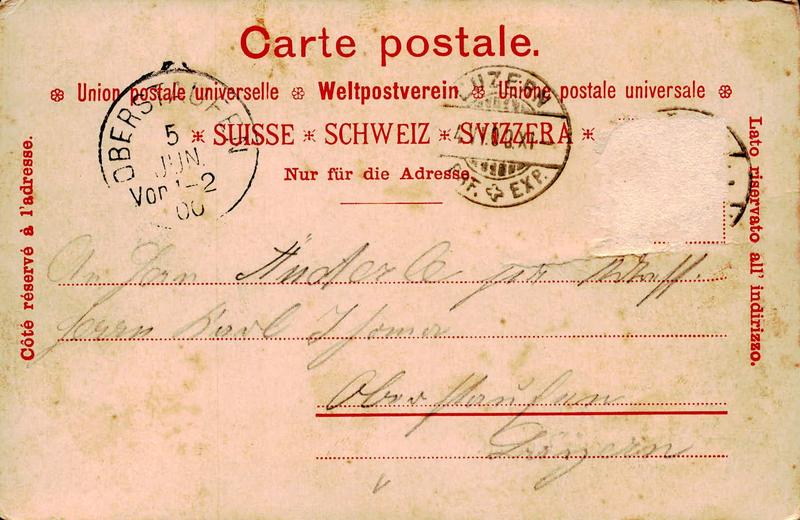 Carte postale.
Union postale universelle Weltpostverein Unione postale universale
* SUISSE * SCHWEIZ * SVIZZERA *
Nur für die Adresse.
Côté réservé à l'adresse.
Lato riservato all' indirizzo.
OBERSTAUFEN
5
JUN.
Vor 1-2
00
LUZERN
EXP.
An Herrn
Herrn Karl Thoma
Oberstaufen